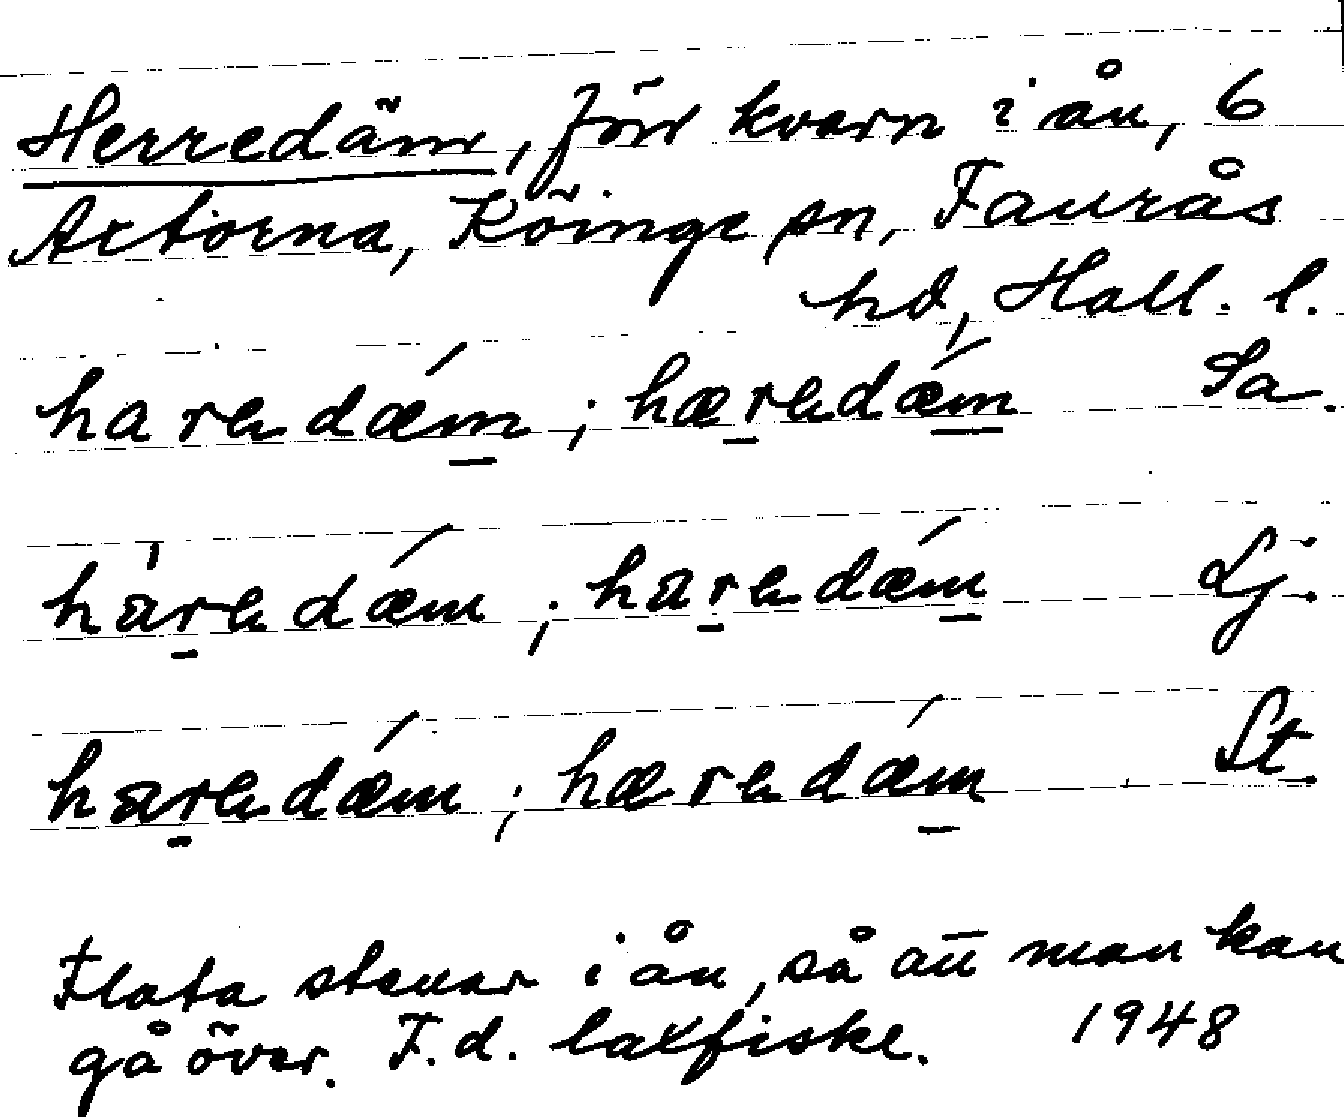 Herredäm, förr kvarn i ån, 6
Axtorna, Köinge sn, Faurås
hd, Hall. l.
haradǽm; hæradǽm Sa.
háradǽm; haradǽm Lj.
haradǽm; hæradǽm St.
Flata stenar i ån, så att man kan
gå över. F.d. laxfiske. 1948